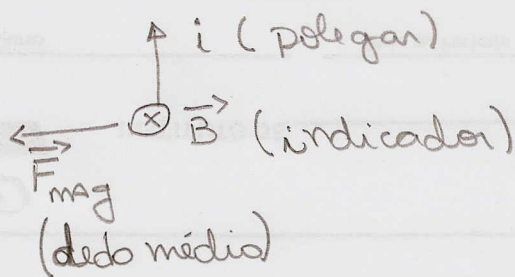 i (polegar)
B (indicador)
F mag
(dedo médio)